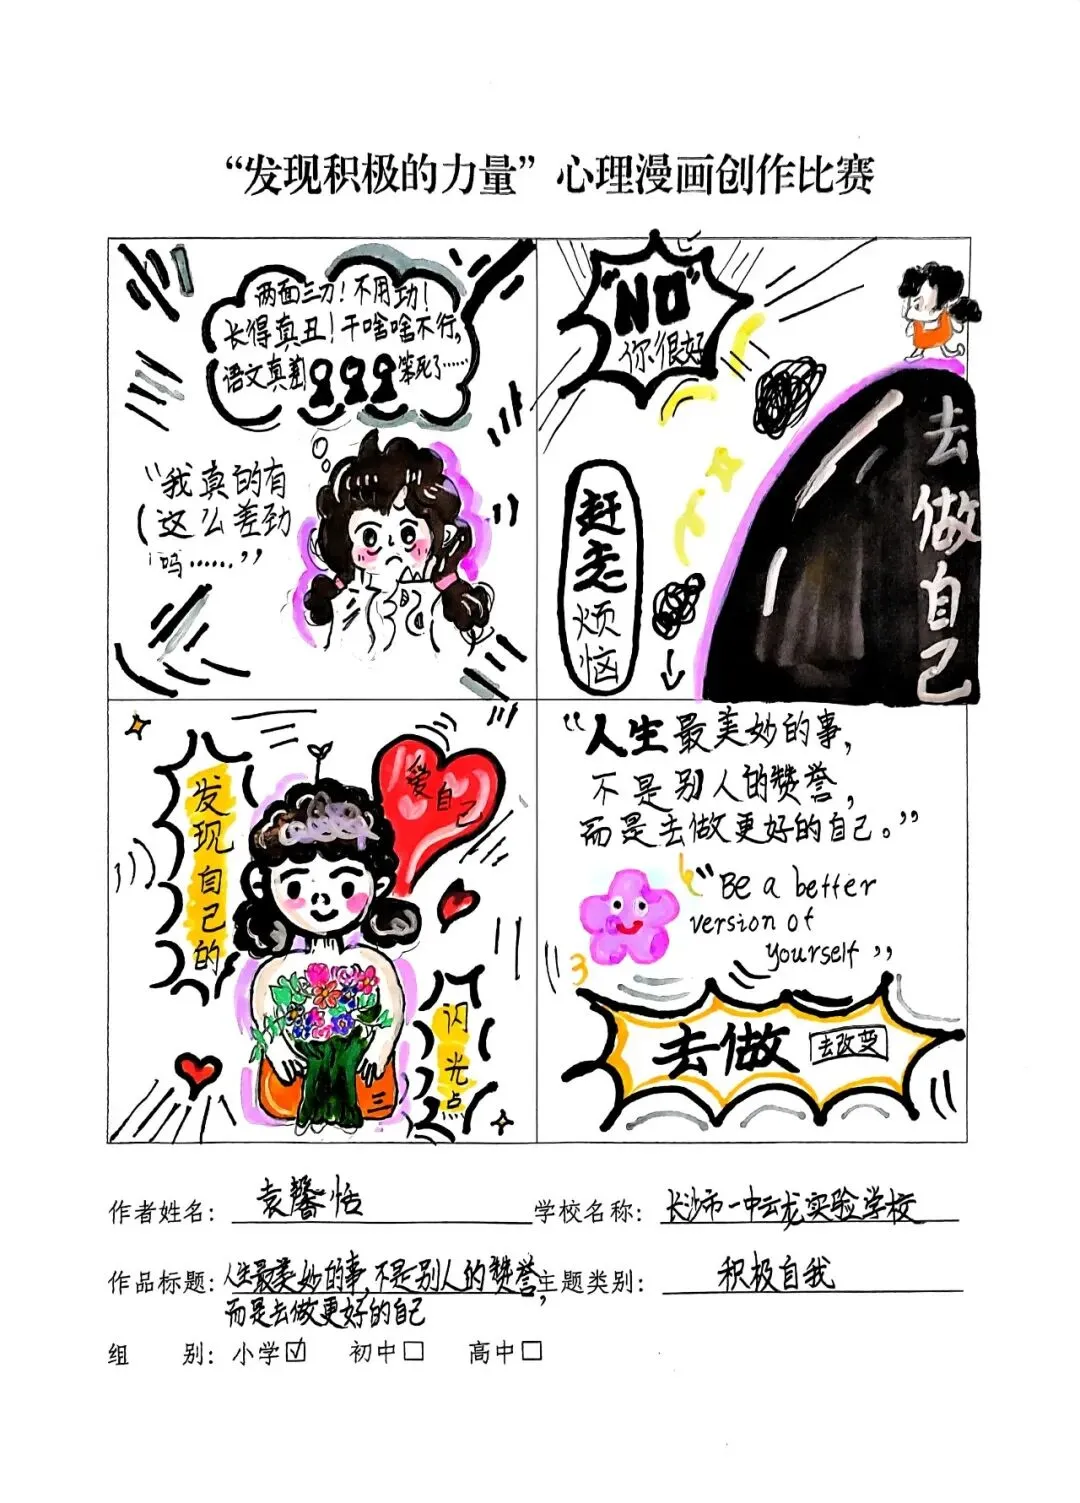 “发现积极的力量”心理漫画创作比赛
两面三刀！不用功！
长得真丑！干啥啥不行,
语文真差
笨死了……
“我真的有
这么差劲
吗……”
“NO”
你很好
赶走烦恼
去做自己
发现自己的
爱自己
闪光点
三
“人生最美妙的事,
不是别人的赞誉,
而是去做更好的自己。”
“Be a better
version of
yourself”
去做 去改变
作者姓名： 袁馨恬 学校名称： 长沙市一中云龙实验学校
作品标题： 人生最美妙的事,不是别人的赞誉, 主题类别： 积极自我
而是去做更好的自己
组 别： 小学☑ 初中□ 高中□